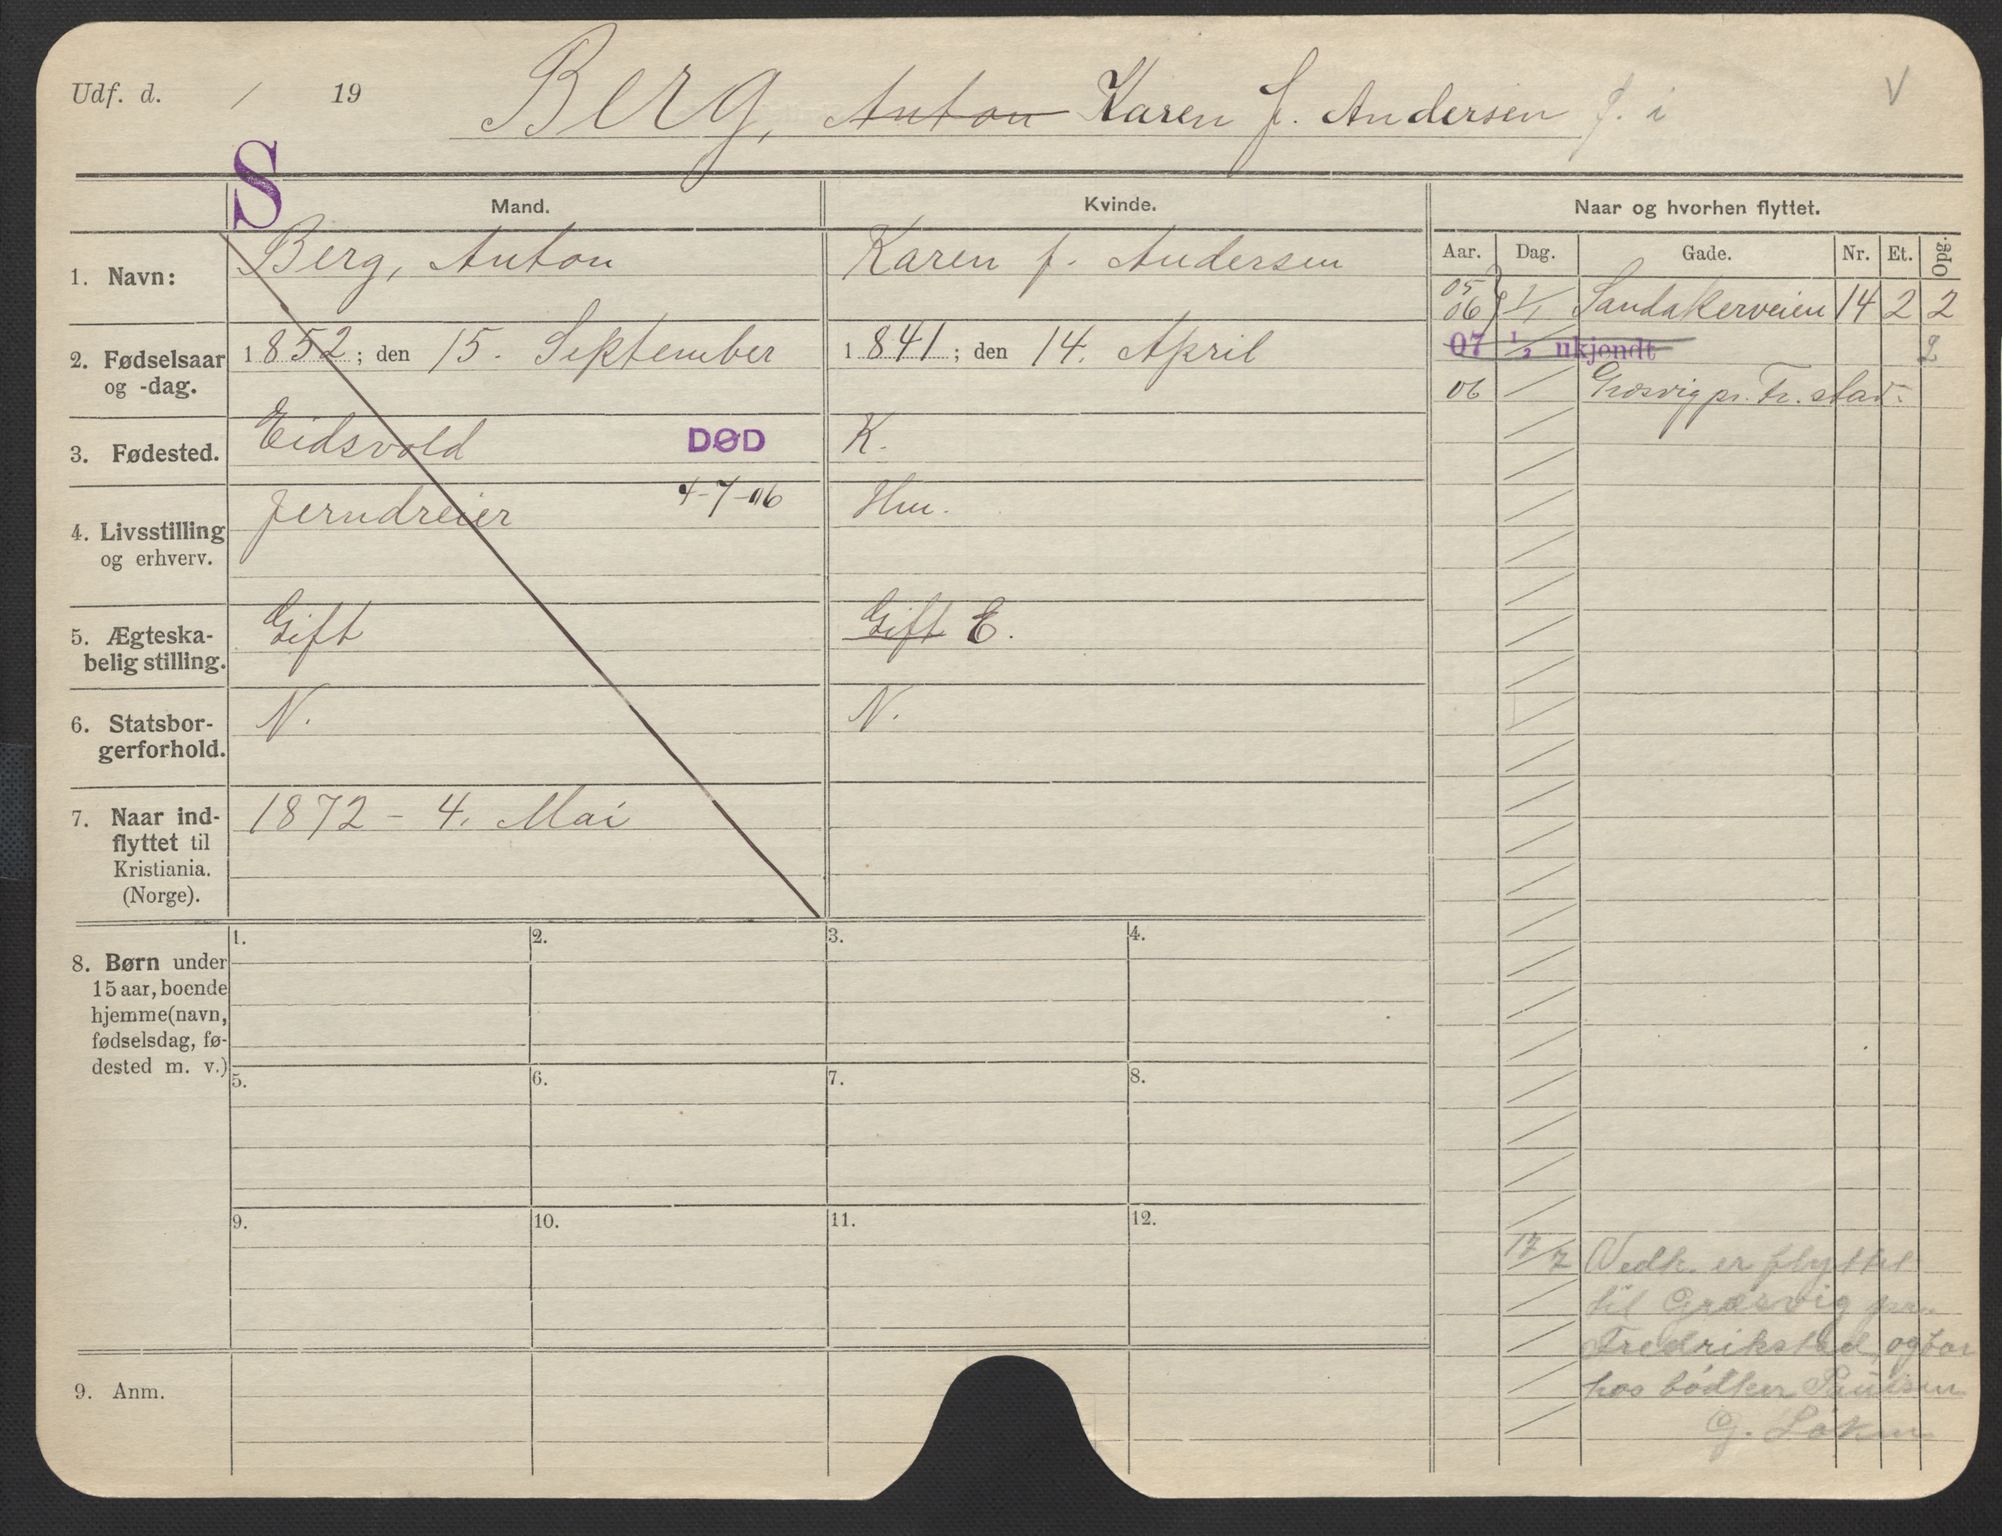 Udf. d. / 19
Berg, Anton Karen f. Andersen f. i
V
S
Mand.
Kvinde.
Naar og hvorhen flyttet.
Aar. Dag. Gade. Nr. Et. Opg.
1. Navn:
Berg, Anton
Karen f. Andersen
05
06 1/1 Sandakerveien 14 2 2
07 1/2 ukjendt 2
06 Græsvig pr. Fr.stad
2. Fødselsaar
og -dag.
1852; den 15. September
1841; den 14. April
3. Fødested.
Eidsvold DØD
4-7-06
K.
4. Livsstilling
og erhverv.
Jerndreier
Hm.
5. Ægteska-
belig stilling.
Gift
Gift E.
6. Statsbor-
gerforhold.
N.
N.
7. Naar ind-
flyttet til
Kristiania.
(Norge).
1872 - 4. Mai
8. Børn under
15 aar, boende
hjemme (navn,
fødselsdag, fø-
dested m. v.)
1. 2. 3. 4.
5. 6. 7. 8.
9. 10. 11. 12.
9. Anm.
17/7 Vedk. er flyttet
til Græsvig pr.
Fredrikstad, og bor
hos bødker Paulsen
G. Løken